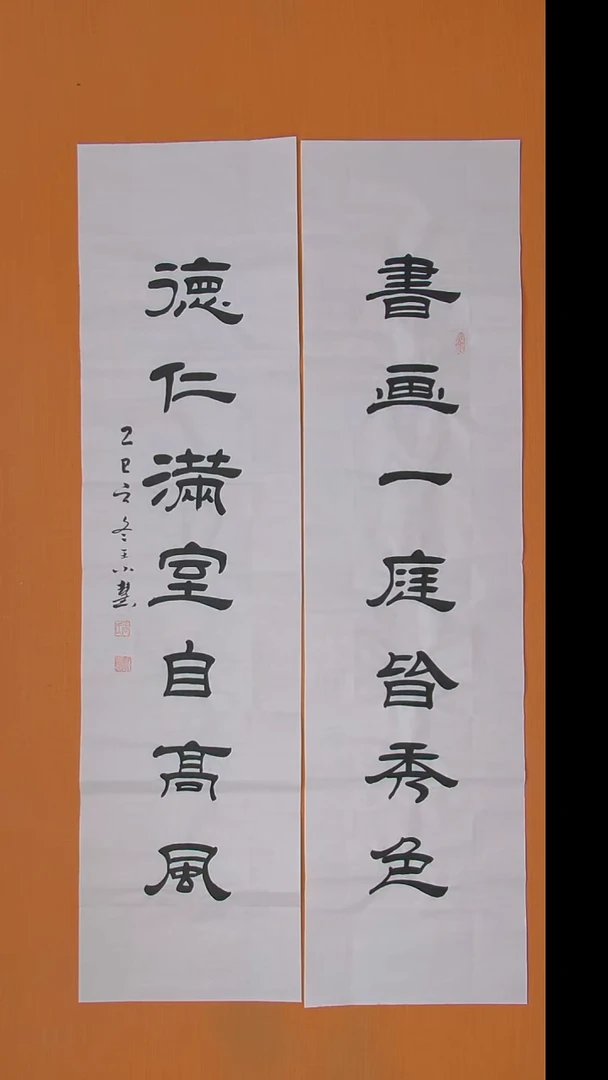 書画一庭皆秀色
德仁滿室自高風
乙巳立冬王小慧